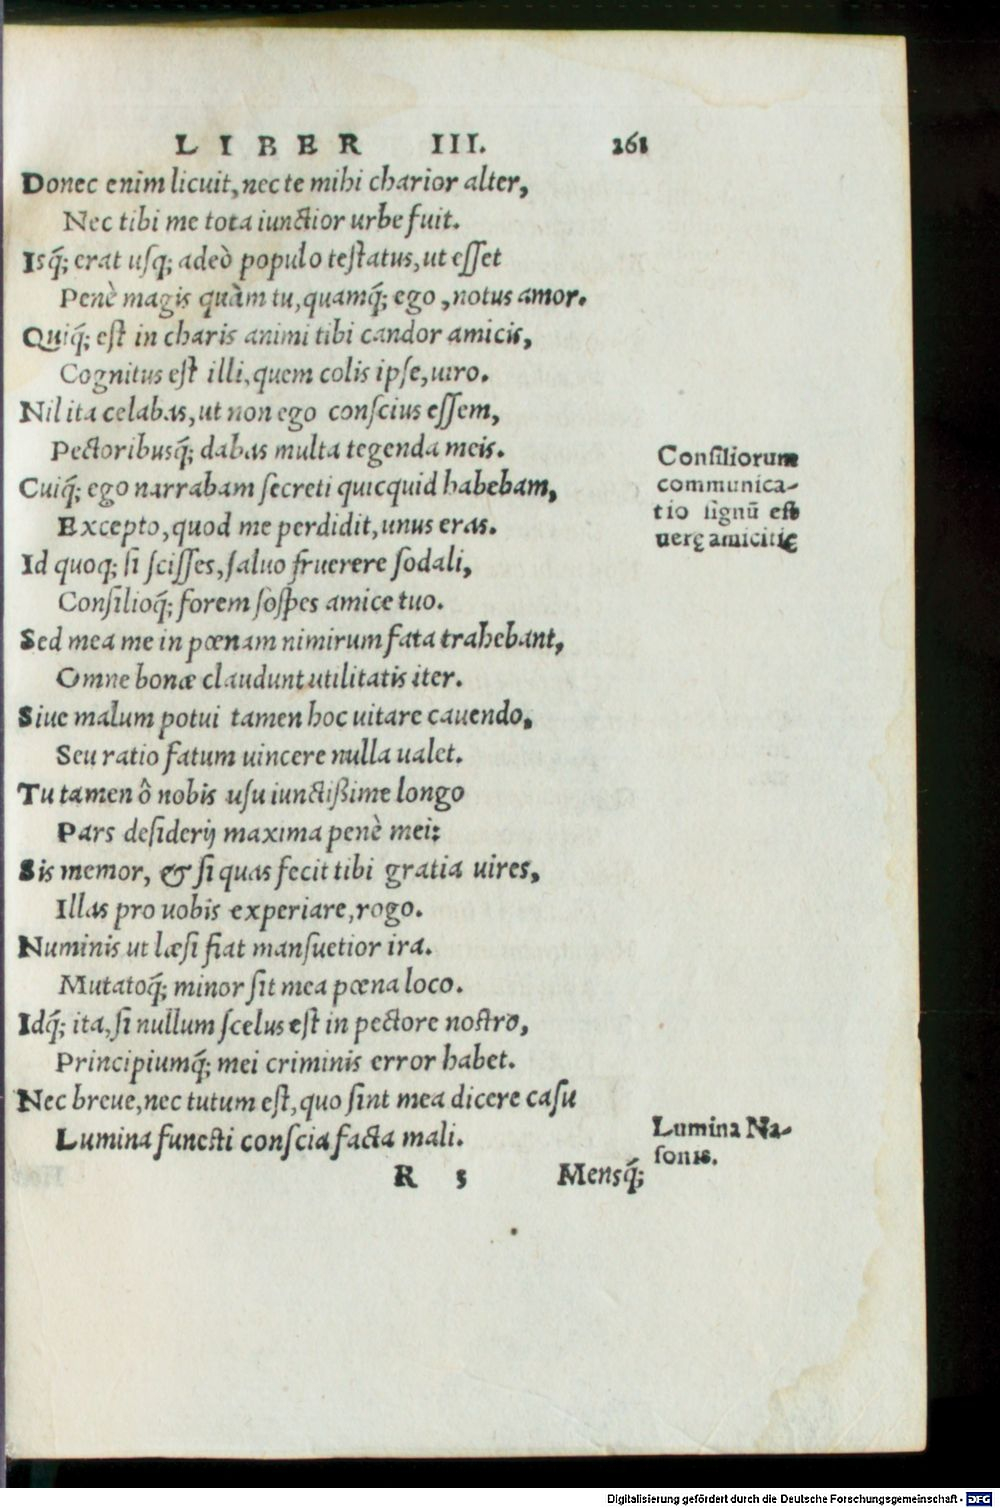 LIBER III. 261
Donec enim licuit, nec te mihi charior alter,
Nec tibi me tota iunctior urbe fuit.
Isq́; erat uſq; adeò populo teſtatus, ut eſſet
Penè magis quàm tu, quamq́; ego, notus amor.
Quiq́; eſt in charis animi tibi candor amicis,
Cognitus eſt illi, quem colis ipſe, uiro.
Nil ita celabas, ut non ego conſcius eſſem,
Pectoribusq́; dabas multa tegenda meis.
Cuiq́; ego narrabam ſecreti quicquid habebam,
Excepto, quod me perdidit, unus eras.
Id quoq; ſi ſciſſes, ſaluo fruerere ſodali,
Conſilioq́; forem ſoſpes amice tuo.
Sed mea me in pœnam nimirum fata trahebant,
Omne bonæ claudunt utilitatis iter.
Siue malum potui tamen hoc uitare cauendo,
Seu ratio fatum uincere nulla ualet.
Tu tamen ô nobis uſu iunctißime longo
Pars deſiderij maxima penè mei:
Sis memor, & ſi quas fecit tibi gratia uires,
Illas pro uobis experiare, rogo.
Numinis ut læſi fiat manſuetior ira.
Mutatoq́; minor ſit mea pœna loco.
Idq́; ita, ſi nullum ſcelus eſt in pectore noſtro,
Principiumq́; mei criminis error habet.
Nec breue, nec tutum eſt, quo ſint mea dicere caſu
Lumina funeſti conſcia facta mali.
R 5 Mensq́;
Conſiliorum
communica-
tio ſignũ eſt
uerę amicitię
Lumina Na-
ſonis.
Digitalisierung gefördert durch die Deutsche Forschungsgemeinschaft - DFG